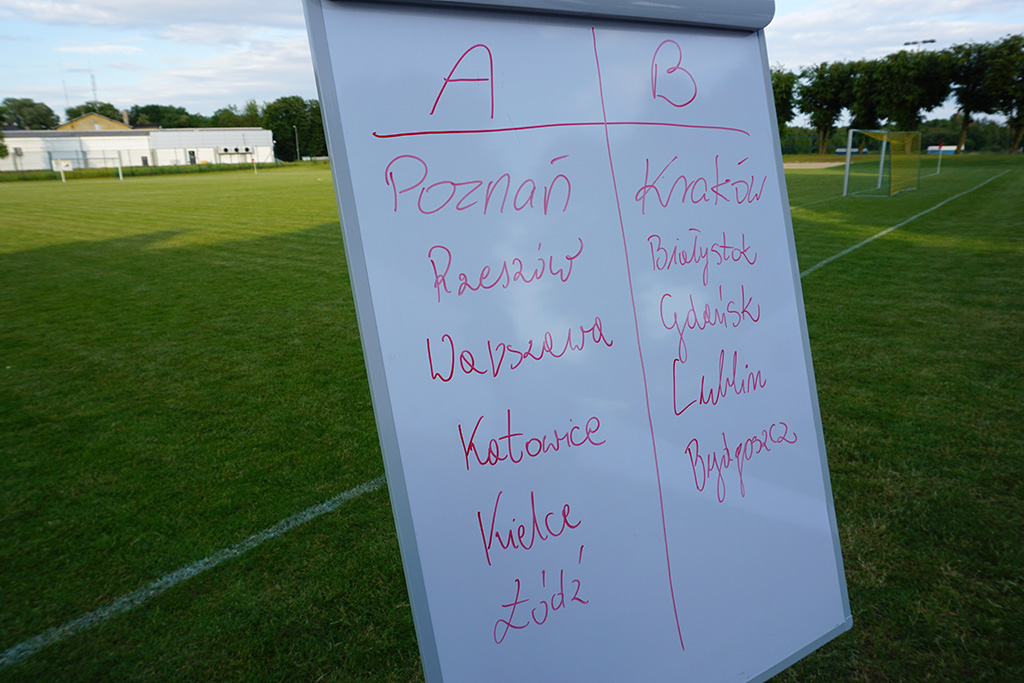 A B
Poznań Kraków
Rzeszów Białystok
Warszawa Gdańsk
Katowice Lublin
Kielce Bydgoszcz
Łódź